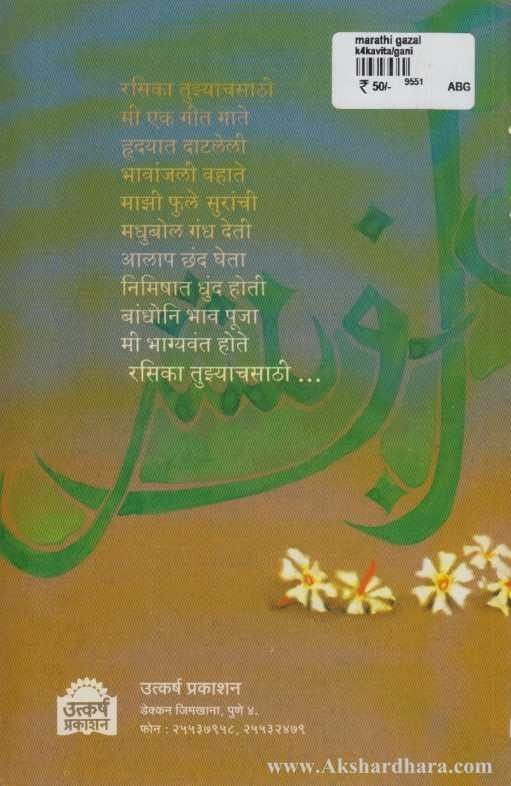 marathi gazal
k4kavita/gani
₹ 50/-
9551
ABG
रसिका तुझ्याचसाठी
मी एक गीत गाते
हृदयात दाटलेली
भावांजली वहाते
माझी फुले सुरांची
मधुबोल गंध देती
आलाप छंद घेता
निमिषात धुंद होती
बांधोनि भाव पूजा
मी भाग्यवंत होते
रसिका तुझ्याचसाठी ...
उत्कर्ष
प्रकाशन
उत्कर्ष प्रकाशन
डेक्कन जिमखाना, पुणे ४.
फोन : २५५३७९५८, २५५३२४७९
www.Akshardhara.com